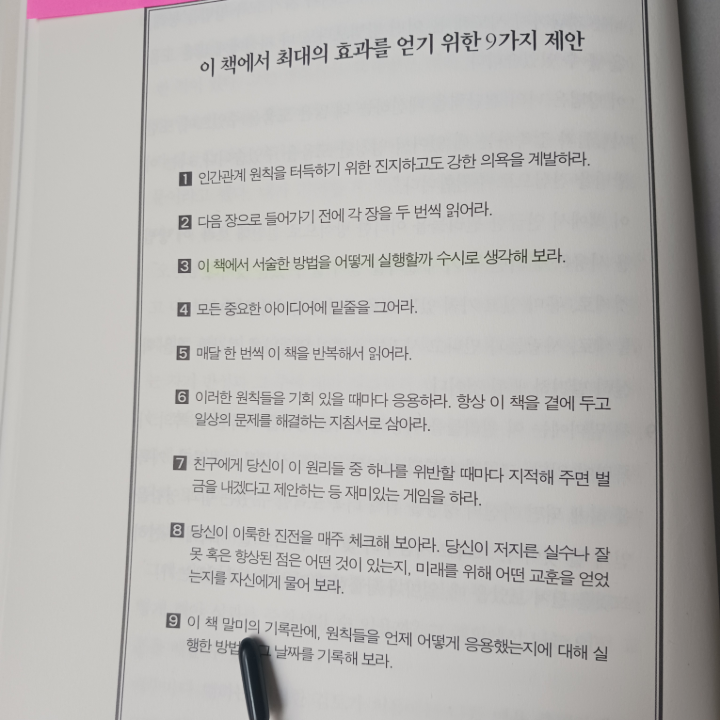 이 책에서 최대의 효과를 얻기 위한 9가지 제안
1 인간관계 원칙을 터득하기 위한 진지하고도 강한 의욕을 계발하라.
2 다음 장으로 들어가기 전에 각 장을 두 번씩 읽어라.
3 이 책에서 서술한 방법을 어떻게 실행할까 수시로 생각해 보라.
4 모든 중요한 아이디어에 밑줄을 그어라.
5 매달 한 번씩 이 책을 반복해서 읽어라.
6 이러한 원칙들을 기회 있을 때마다 응용하라. 항상 이 책을 곁에 두고
일상의 문제를 해결하는 지침서로 삼아라.
7 친구에게 당신이 이 원리들 중 하나를 위반할 때마다 지적해 주면 벌
금을 내겠다고 제안하는 등 재미있는 게임을 하라.
8 당신이 이룩한 진전을 매주 체크해 보아라. 당신이 저지른 실수나 잘
못 혹은 향상된 점은 어떤 것이 있는지, 미래를 위해 어떤 교훈을 얻었
는지를 자신에게 물어 보라.
9 이 책 말미의 기록란에, 원칙들을 언제 어떻게 응용했는지에 대해 실
행한 방법 날짜를 기록해 보라.